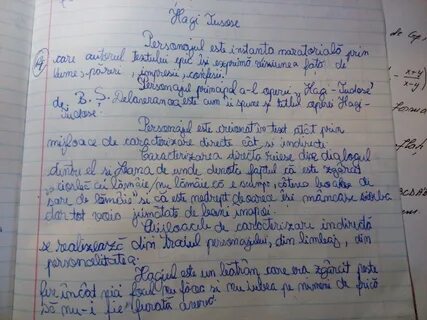 Hagi Tusose
Personajul este instanta naratorială prin
care autorul textului epic își exprimă viziunea față de
lume, păreri, impresii, confesii.
Personajul principal a-l operei „Hagi-Tudose"
de B. Ș. Delavrancea este cum îi spune și titlul operei Hagi-
Tudose.
Personajul este creionat în text atât prin
mijloace de caracterizare directe cât și indirecte.
Caracterizarea directă reiese din dialogul
dintre el și Leana de unde denotă faptul că este zgârcit
sare de lămâie" și că este nedrept deoarece își mâncase ciorba
dar tot voia jumătate de bani înapoi.
Mijloacele de caracterizare indirectă
se realizează din traiul personajului, din limbaj, din
personalitatea.
Hagiul este un bătrân care era zgârcit peste
fire încât nici focul nu făcea și nu iubea pe nimeni de frică
să nu-i fie furată averea.
x+y
x-y